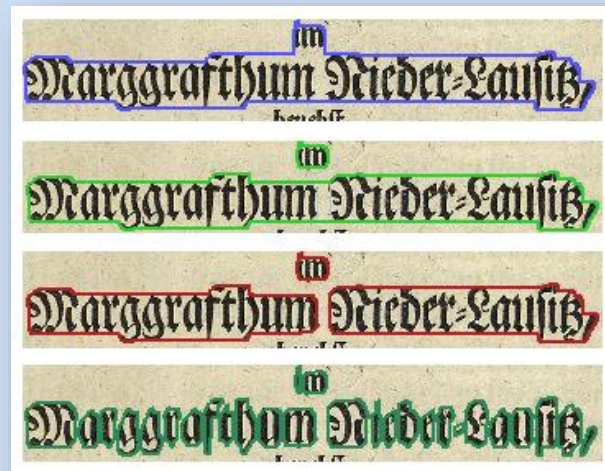 im
Marggrafthum Nieder-Lausitz,
im
Marggrafthum Nieder-Lausitz,
im
Marggrafthum Nieder-Lausitz,
im
Marggrafthum Nieder-Lausitz,